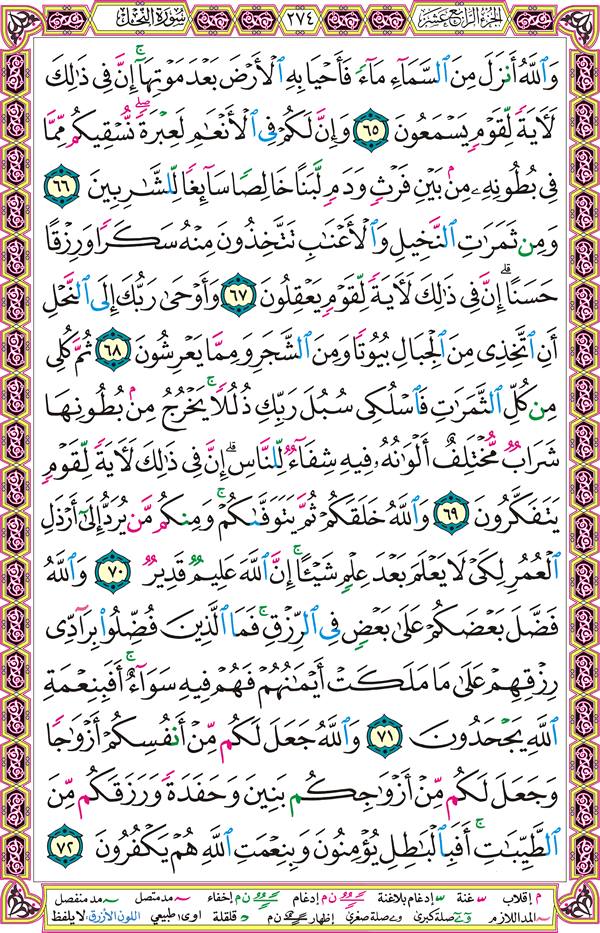 الجزء الرابع عشر ٢٧٤ سورة النحل
وَٱللَّهُ أَنزَلَ مِنَ ٱلسَّمَآءِ مَآءً فَأَحْيَا بِهِ ٱلْأَرْضَ بَعْدَ مَوْتِهَآ ۚ إِنَّ فِى ذَٰلِكَ
لَـَٔايَةً لِّقَوْمٍ يَسْمَعُونَ ٦٥ وَإِنَّ لَكُمْ فِى ٱلْأَنْعَـٰمِ لَعِبْرَةً ۖ نُّسْقِيكُم مِّمَّا
فِى بُطُونِهِۦ مِنۢ بَيْنِ فَرْثٍ وَدَمٍ لَّبَنًا خَالِصًا سَآئِغًا لِّلشَّـٰرِبِينَ ٦٦
وَمِن ثَمَرَٰتِ ٱلنَّخِيلِ وَٱلْأَعْنَـٰبِ تَتَّخِذُونَ مِنْهُ سَكَرًا وَرِزْقًا
حَسَنًا ۗ إِنَّ فِى ذَٰلِكَ لَـَٔايَةً لِّقَوْمٍ يَعْقِلُونَ ٦٧ وَأَوْحَىٰ رَبُّكَ إِلَى ٱلنَّحْلِ
أَنِ ٱتَّخِذِى مِنَ ٱلْجِبَالِ بُيُوتًا وَمِنَ ٱلشَّجَرِ وَمِمَّا يَعْرِشُونَ ٦٨ ثُمَّ كُلِى
مِن كُلِّ ٱلثَّمَرَٰتِ فَٱسْلُكِى سُبُلَ رَبِّكِ ذُلُلًا ۚ يَخْرُجُ مِنۢ بُطُونِهَا
شَرَابٌ مُّخْتَلِفٌ أَلْوَٰنُهُۥ فِيهِ شِفَآءٌ لِّلنَّاسِ ۗ إِنَّ فِى ذَٰلِكَ لَـَٔايَةً لِّقَوْمٍ
يَتَفَكَّرُونَ ٦٩ وَٱللَّهُ خَلَقَكُمْ ثُمَّ يَتَوَفَّىٰكُمْ ۚ وَمِنكُم مَّن يُرَدُّ إِلَىٰٓ أَرْذَلِ
ٱلْعُمُرِ لِكَىْ لَا يَعْلَمَ بَعْدَ عِلْمٍ شَيْـًٔا ۚ إِنَّ ٱللَّهَ عَلِيمٌ قَدِيرٌ ٧٠ وَٱللَّهُ
فَضَّلَ بَعْضَكُمْ عَلَىٰ بَعْضٍ فِى ٱلرِّزْقِ ۚ فَمَا ٱلَّذِينَ فُضِّلُوا۟ بِرَآدِّى
رِزْقِهِمْ عَلَىٰ مَا مَلَكَتْ أَيْمَـٰنُهُمْ فَهُمْ فِيهِ سَوَآءٌ ۚ أَفَبِنِعْمَةِ
ٱللَّهِ يَجْحَدُونَ ٧١ وَٱللَّهُ جَعَلَ لَكُم مِّنْ أَنفُسِكُمْ أَزْوَٰجًا
وَجَعَلَ لَكُم مِّنْ أَزْوَٰجِكُم بَنِينَ وَحَفَدَةً وَرَزَقَكُم مِّنَ
ٱلطَّيِّبَـٰتِ ۚ أَفَبِٱلْبَـٰطِلِ يُؤْمِنُونَ وَبِنِعْمَتِ ٱللَّهِ هُمْ يَكْفُرُونَ ٧٢
م إقلاب غنة إدغام بلاغنة ن م إدغام ن م إخفاء مد متصل مد منفصل
المد اللازم صلة كبرى صلة صغرى إظهار ن م قلقلة طبيعي اللون الأزرق: لا يلفظ